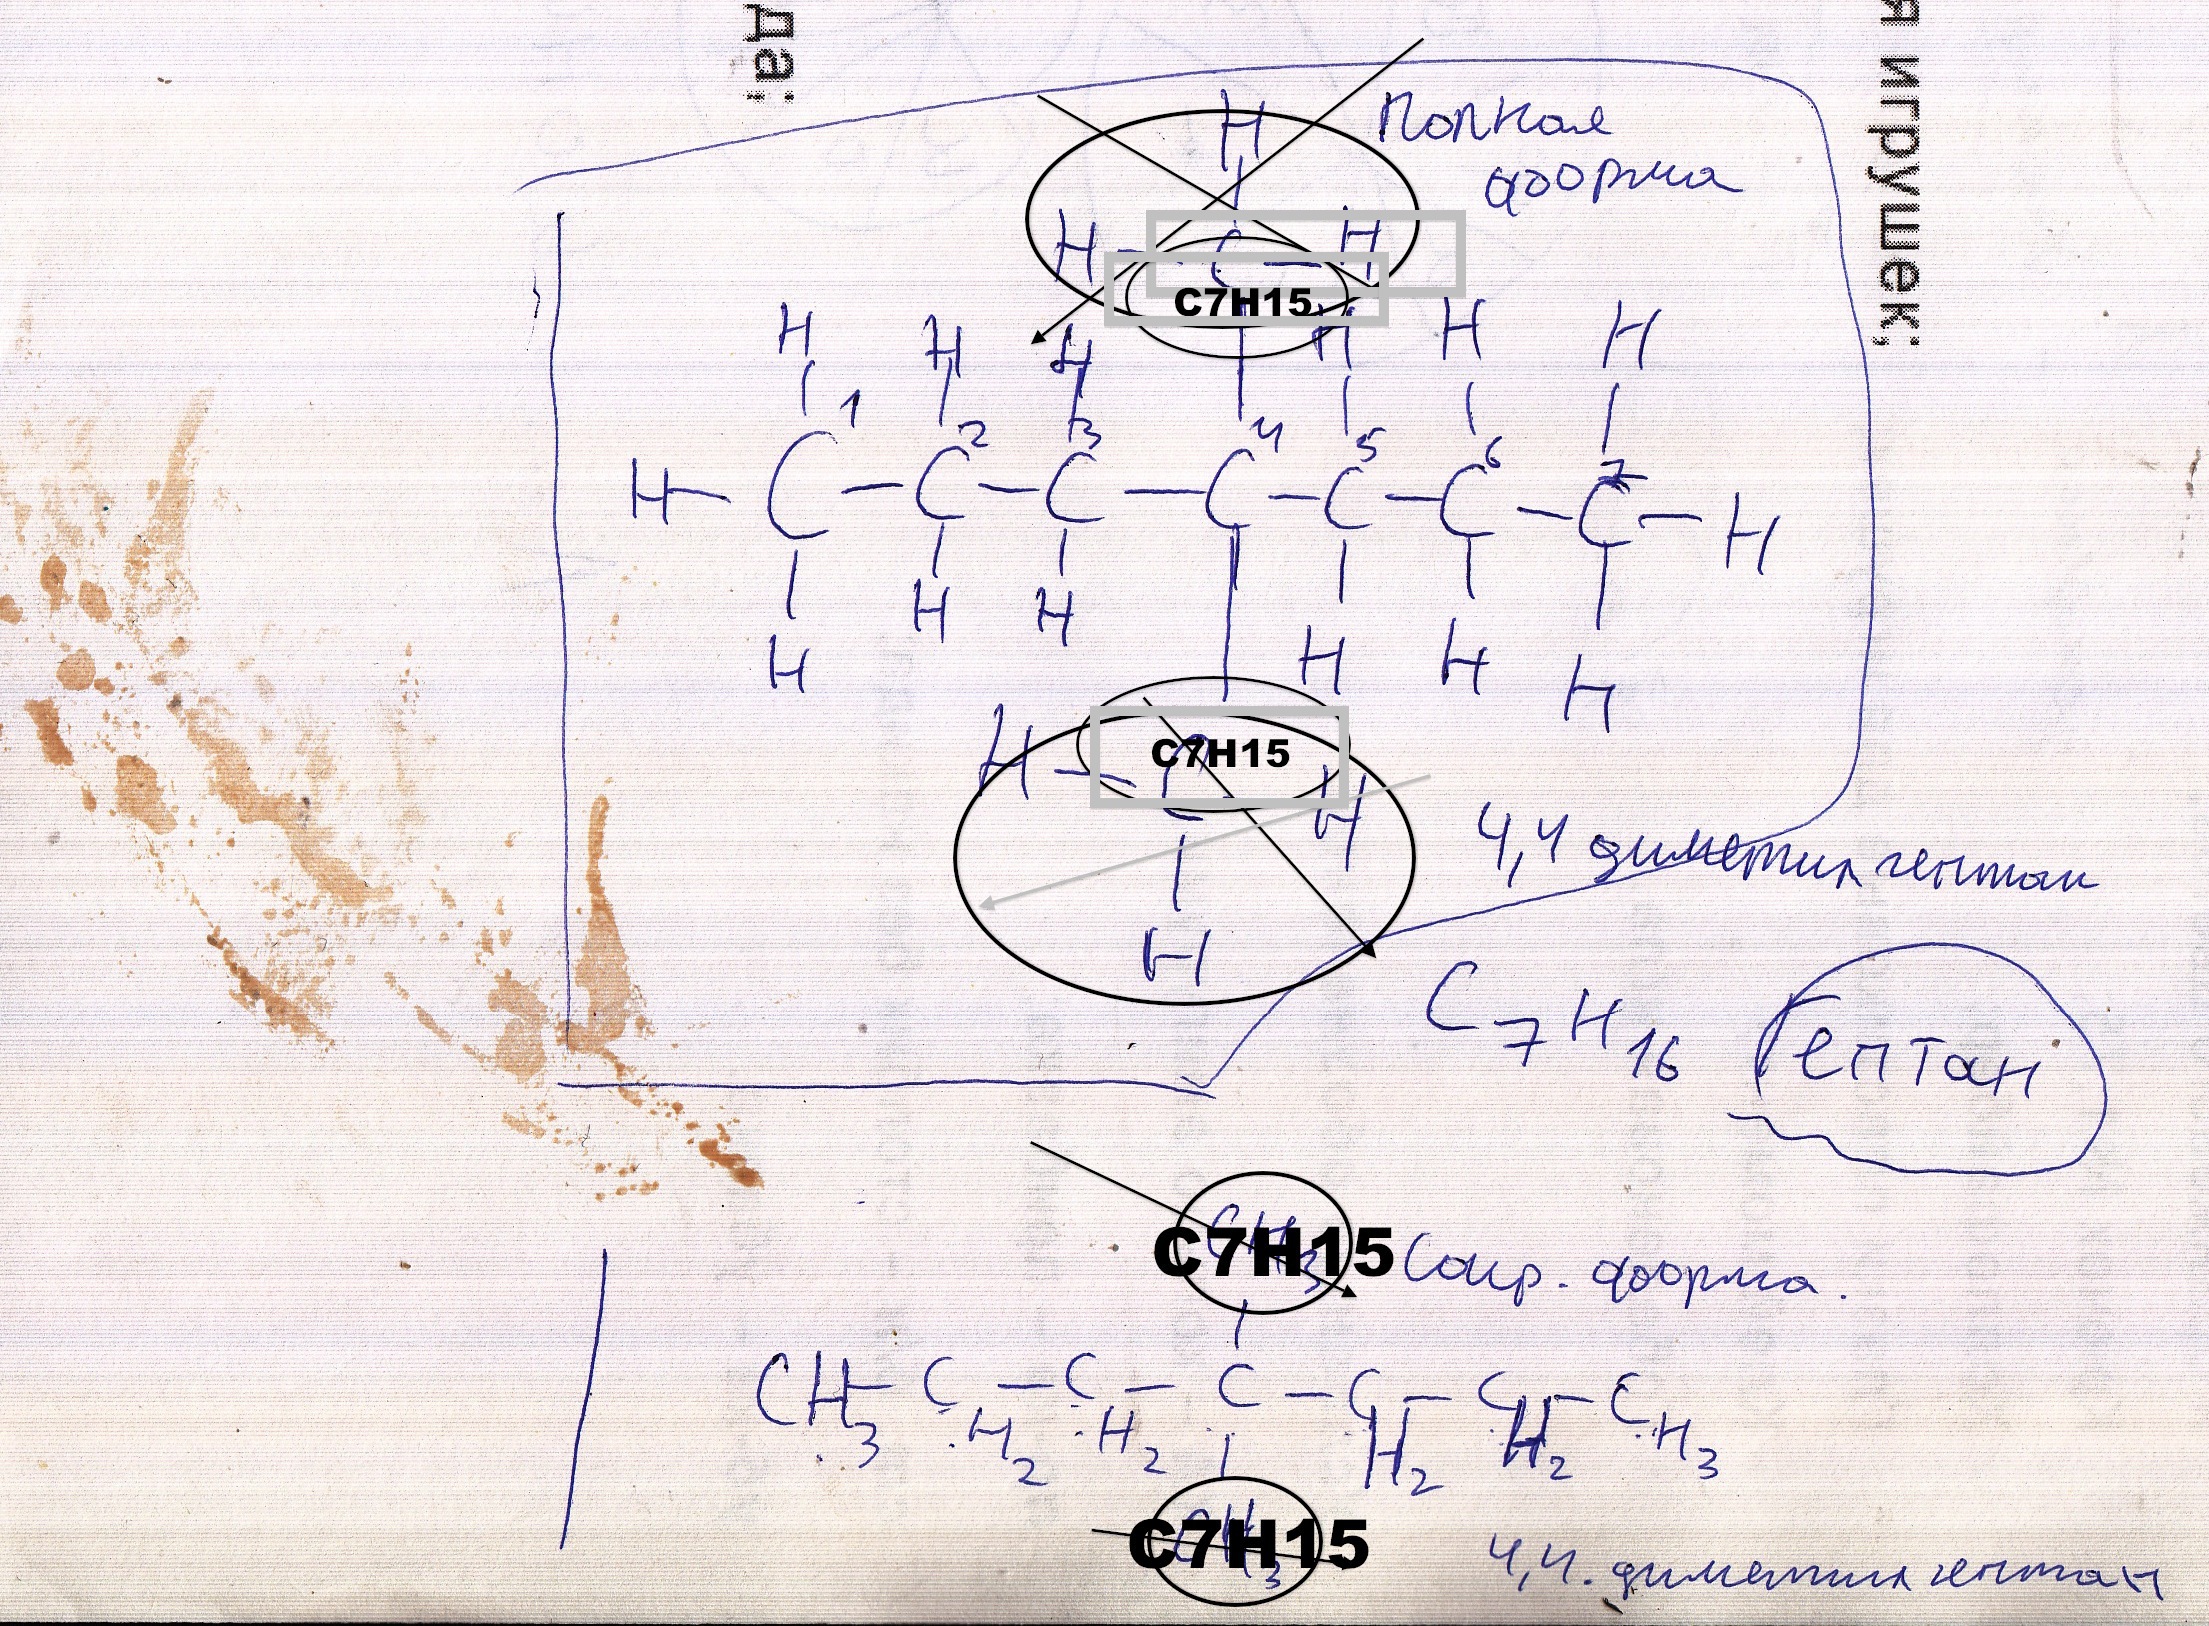 да:
я игрушек:
Полная
форма
H
H - C - H
C7H15
H H H H H H
1 2 3 4 5 6 7
H - C - C - C - C - C - C - C - H
H H H H H H
C7H15
H - C H
H
4,4 диметил гептан
C7H16 Гептан
CH3
C7H15
Сокр. форма.
CH3 - CH2 - CH2 - C - CH2 - CH2 - CH3
CH3
C7H15
4,4. диметил гептан